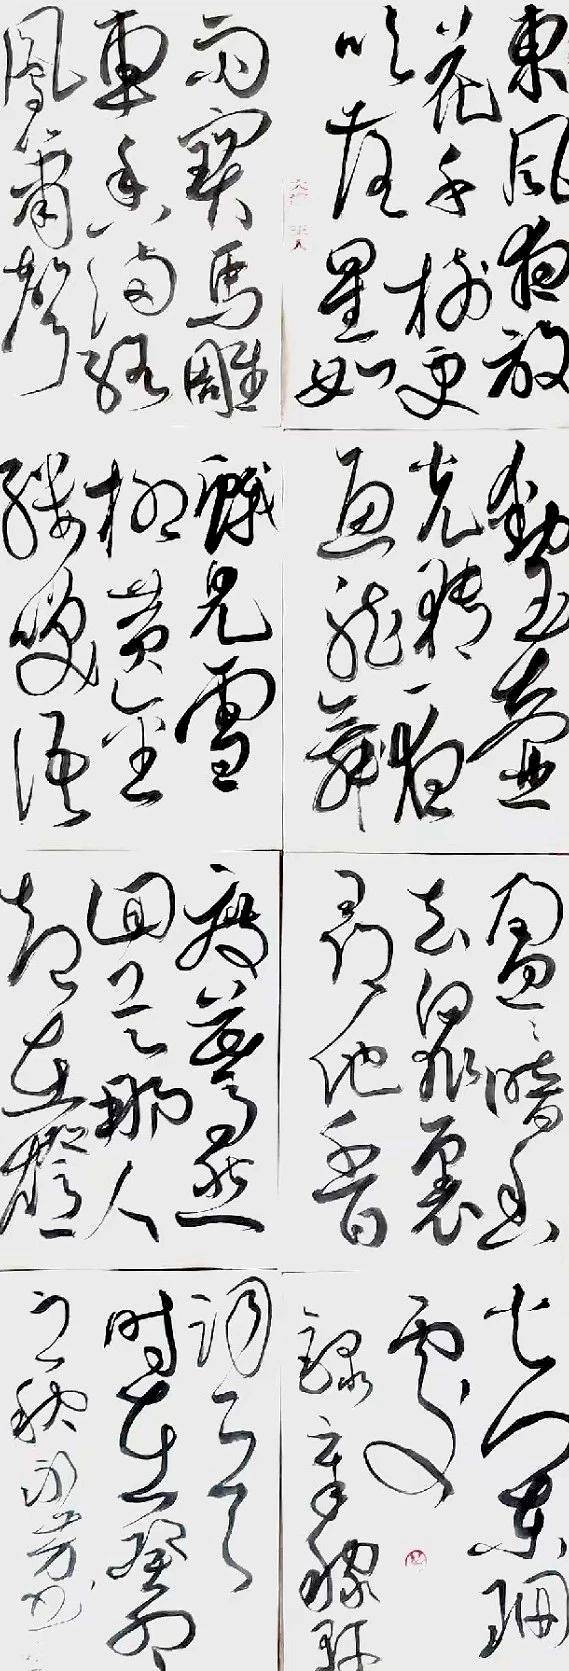 東風夜放
花千樹更
吹落星如
雨寶馬雕
車香滿路
鳳簫聲
動玉壺
光轉一夜
魚龍舞
蛾兒雪
柳黃金
縷笑語
盈盈暗香
去眾裏
尋他千百
度驀然
回首那人
却在燈
火闌珊
處
錄辛稼軒
詞一首
時在癸卯
之秋永芳書